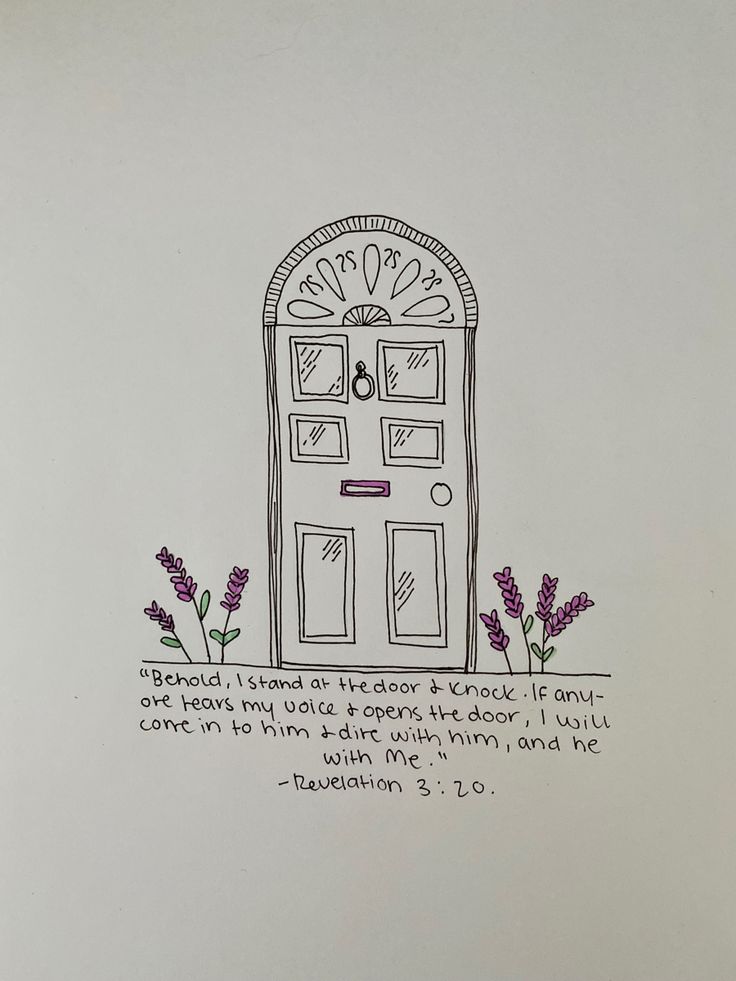 "Behold, I stand at the door & knock. If any-
one hears my voice & opens the door, I will
come in to him & dine with him, and he
with Me."
-Revelation 3:20.